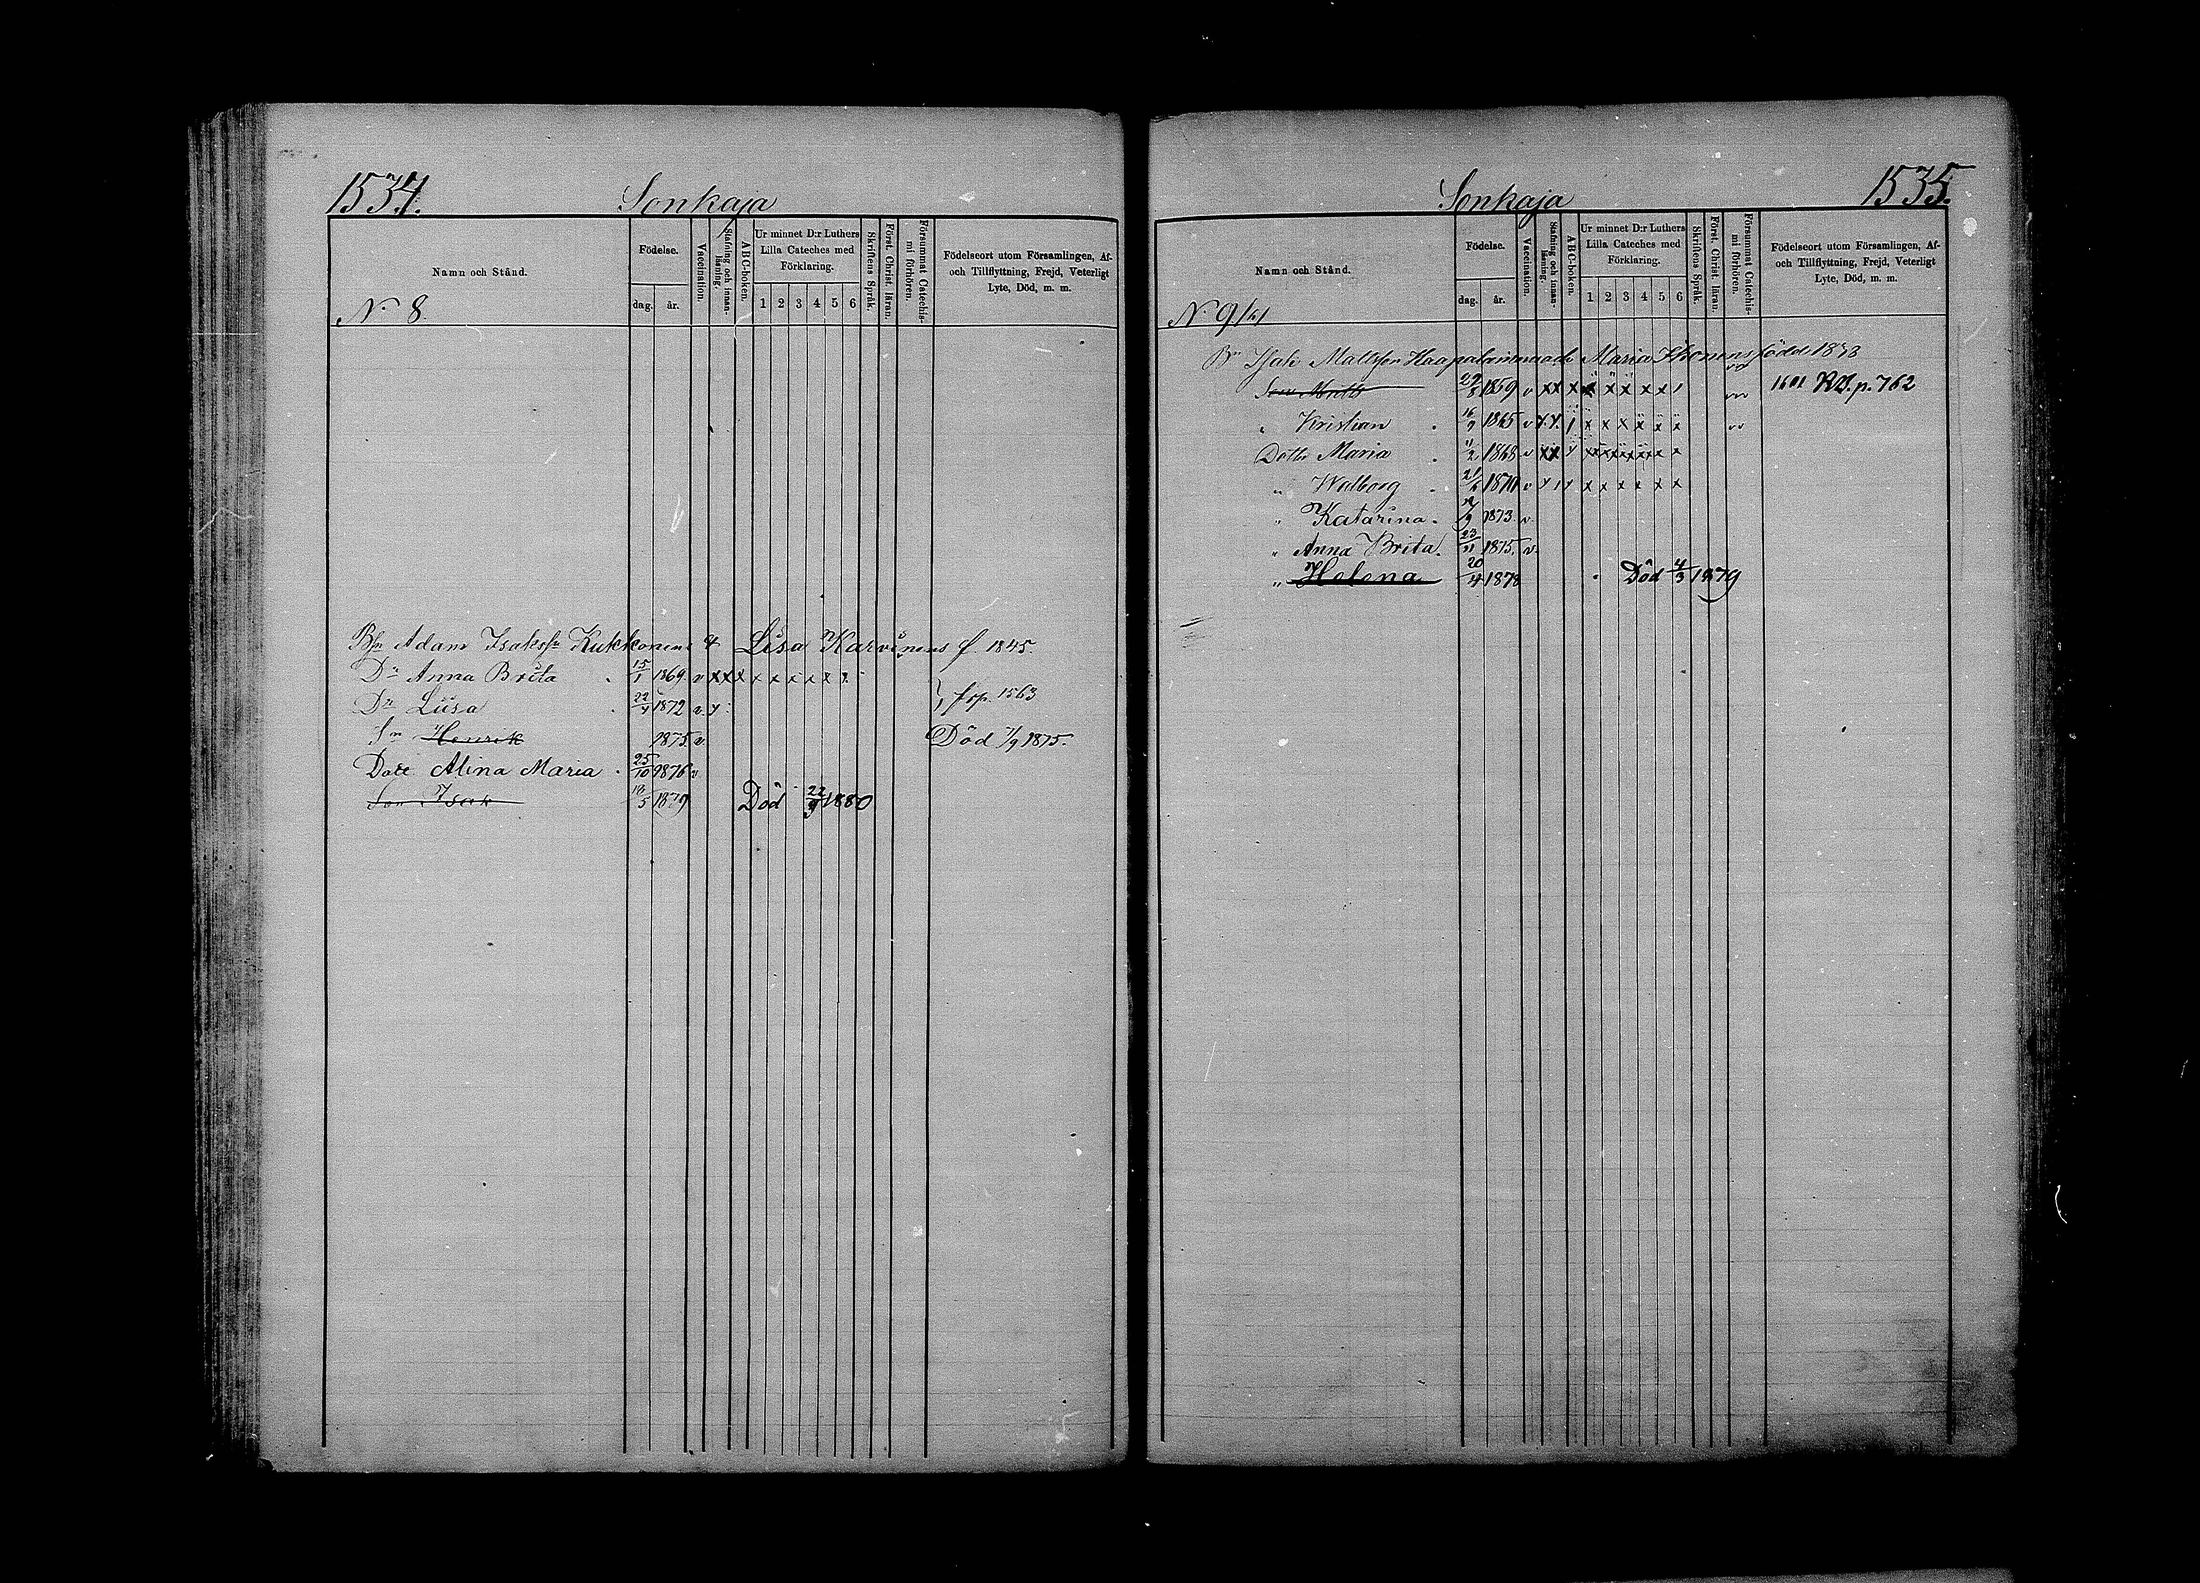 1534.
Sonkaja
Namn och Stånd.
Födelse.
dag.
år.
Vaccination.
Stafning och innan-
läsning.
ABC-boken.
Ur minnet D:r Luthers
Lilla Cateches med
Förklaring.
1 2 3 4 5 6
Skriftens Språk.
Först. Christ. läran.
Försummat Catechis-
mi förhören.
Födelseort utom Församlingen, Af-
och Tillflyttning, Frejd, Veterligt
Lyte, Död, m. m.
N. 8.
Adam Isakss. Kukkonen & Lisa Karvinens f. 1845.
Dr Anna Brita 15/1 1869 v x x x x x x x x x
Dr Liisa 22/4 1872 v. y } 1563
Sn Henrik 1875 v. Död 7/9 1875.
Dott Alina Maria 25/10 1876 v
Son Isak 18/5 1879 Död 22/9 1880
Sonkaja
1535.
Namn och Stånd.
Födelse.
dag.
år.
Vaccination.
Stafning och innan-
läsning.
ABC-boken.
Ur minnet D:r Luthers
Lilla Cateches med
Förklaring.
1 2 3 4 5 6
Skriftens Språk.
Först. Christ. läran.
Försummat Catechis-
mi förhören.
Födelseort utom Församlingen, Af-
och Tillflyttning, Frejd, Veterligt
Lyte, Död, m. m.
N. 9
Isak Matsson Maria född
Son Matts 1859 v x x x x x x x x p. 762
" Kristian 16/9 1865 v y y. x x x x x x
Dotter Maria 11/2 1868 v x x y x x x x x x
" Walborg v x x x x x x
" Katarina. 1873 v
" Anna Brita. 23/11 1875. v.
" Helena 20/4 1878 Död 4/3 1879